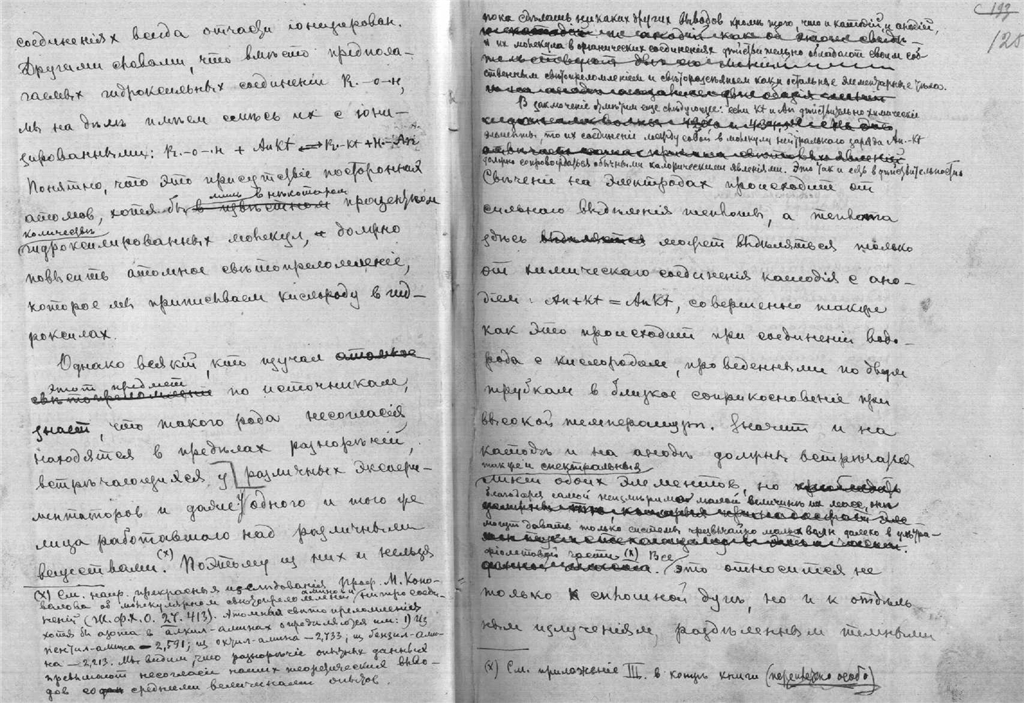 соединеніях всегда отчасти іонизирован.
Другими словами, что вместо предпола-
гаемых гидроксильных соединеній R.-O-H,
мы на деле имеем смесь их с іони-
зированными: R.-O-H + AnKt ⟷ R-Kt + H-An
Понятно, что это присутствіе посторонних
атомов, хотя бы в известном процентном
лишь в некотором
количестве
гидроксилированных молекул, должно
повысить атомное светопреломленіе,
которое мы приписываем кислороду в гид-
роксилах.
Однако всякій, кто изучал атомное
этот предмет
светопреломленіе по источникам,
знает, что такого рода несогласія
находятся в пределах разноречій,
встречающихся у различных Экспери-
ментаторов и даже у одного и того же
лица работавшаго над различными
веществами. (x) Поэтому из них и нельзя
(x) См. напр. прекрасныя изследованія Проф. М. Коно-
валова об молекулярном светопреломленіи аминов и нитросоеди-
неній (Ж.Ф.Х.О. 27. 413). Атомныя светопреломленія
хотя бы азота в алкил-аминах определяются им: 1) Из
гептил-амина — 2,591; из октил-амина — 2,733; из бензил-ами-
на — 2,213. Мы видим, что разноречіе опытных данных
превышают несогласіе наших теоретических выво-
дов со средними величинами опытов.
197
125
пока сделать никаких других выводов кроме того, что и катодій и анодій,
и их молекула в органических соединеніях действительно обладают своим соб-
ственным светопреломленіем и светоразсеяньем как и остальные элементарные тела.
В заключеніе отметим еще следующее: если Kt и An действительно химическіе
элементы, то их соединеніе между собой в молекулу нейтральнаго заряда An-Kt
должно сопровождаться обычными калорическими явленіями. Это так и есть в действительности
Свеченіе на Электродах происходит от
сильнаго выделенія теплоты, а теплота
здесь выделяется может выделяться только
от химическаго соединенія катодія с ано-
діем: An+Kt = AnKt, совершенно также
как это происходит при соединеніи водо-
рода с кислородом, проведенными по двум
трубкам в близкое соприкосновеніе при
высокой температуре. Значит и на
катоде и на аноде должны встречаться
также и спектральныя
линіи обоих Элементов, но
благодаря самой неизмеримо малой величине их масс, они
могут давать только системы чрезвычайно малых волн далеко в ультра-
фіолетовой части (x) Все
это относится не
только к сплошной дуге, но и к отдель-
ным излученіям, разделенным темными
(x) См. приложеніе III. в конце книги (переписано особо)